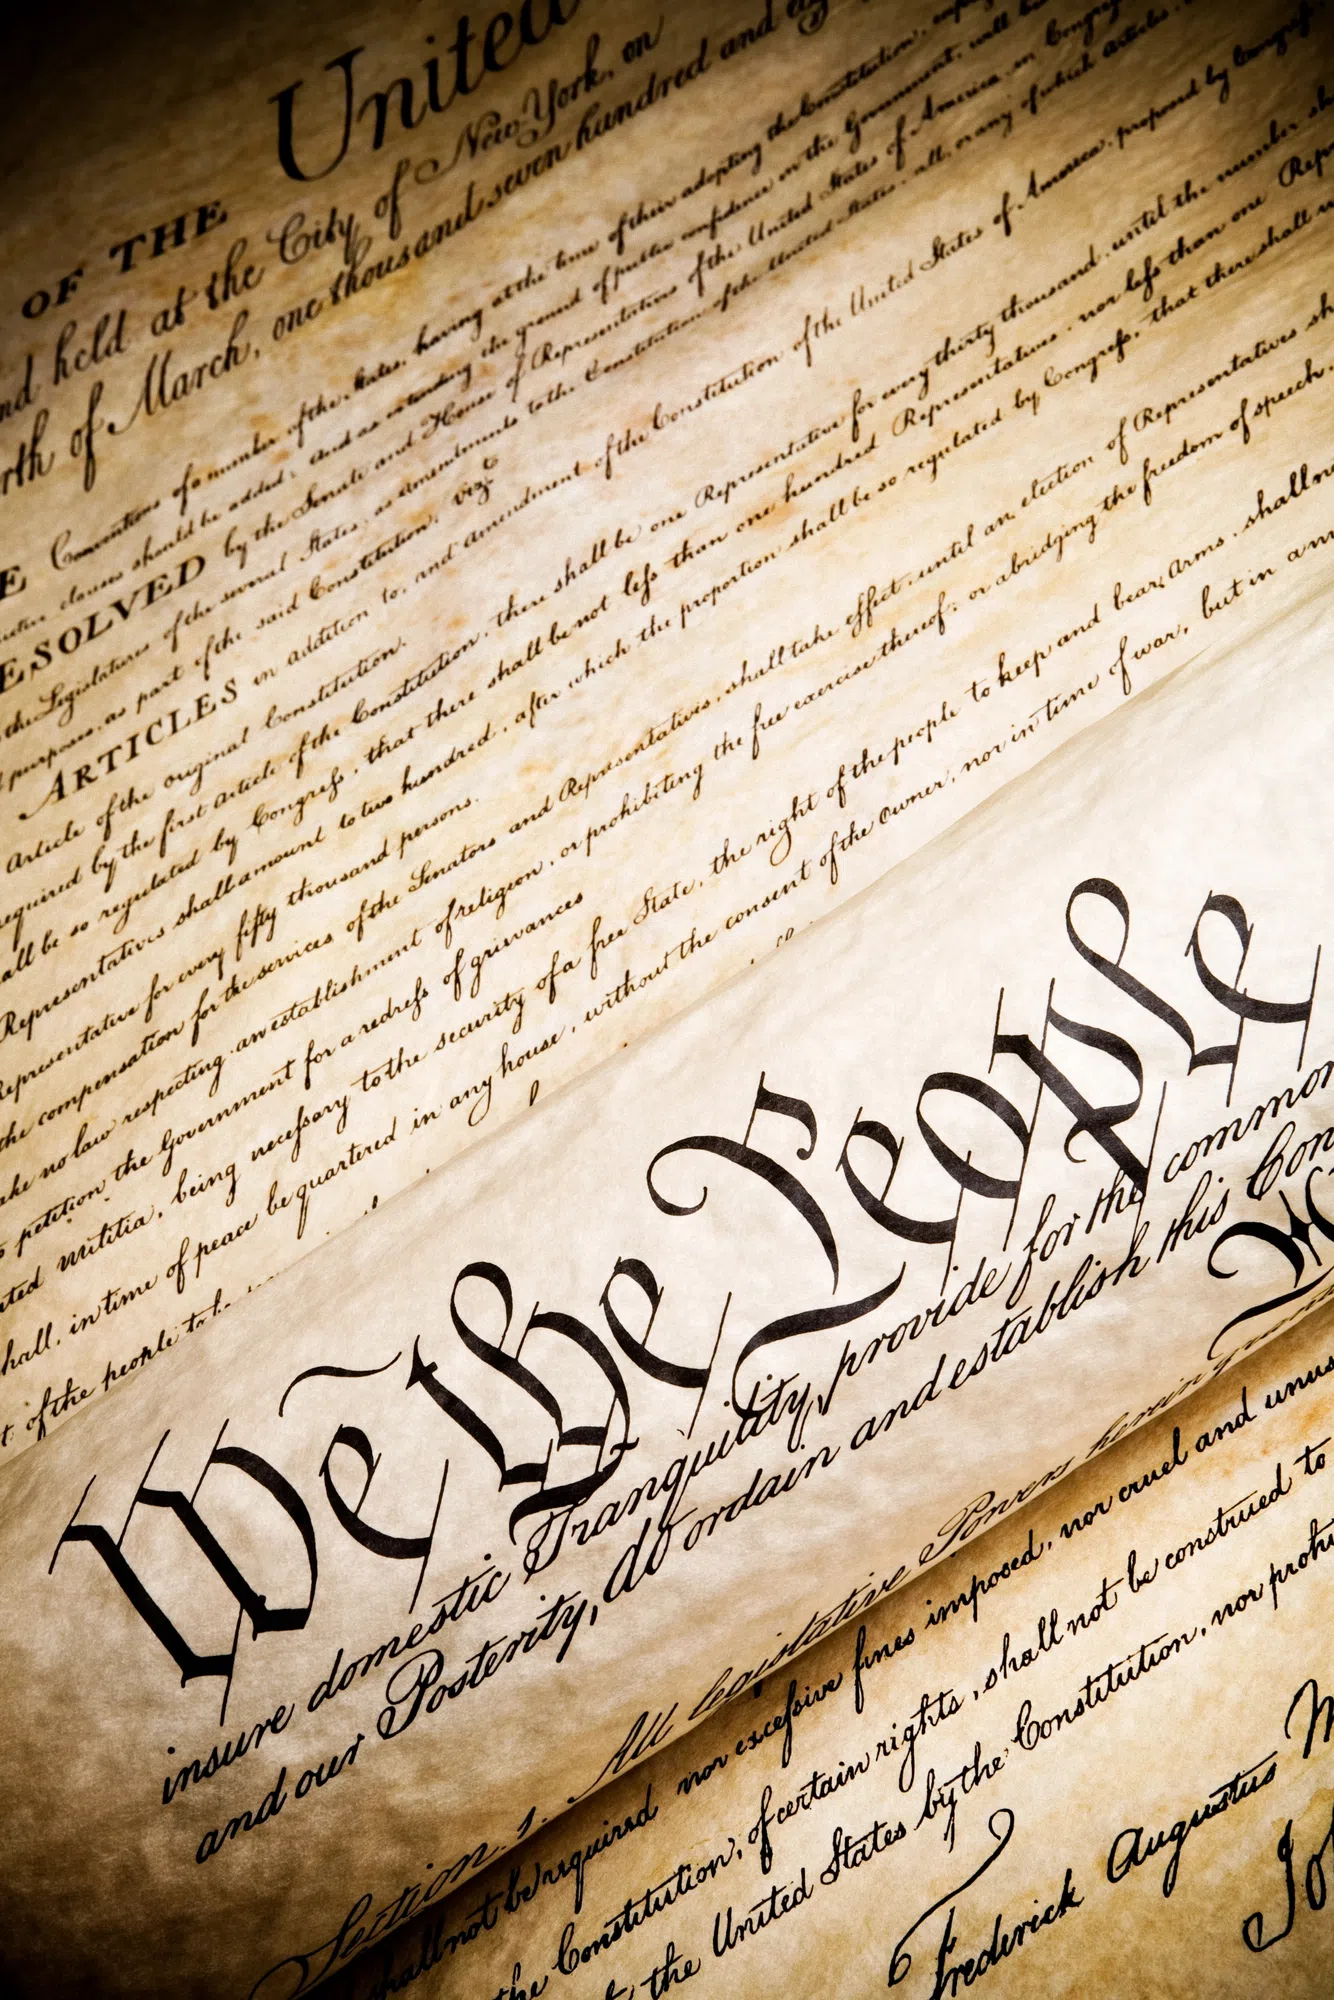 United
OF THE
held at the City of New York, on
of March, one thousand seven hundred and
Conventions of a number of the States, having at the time of their adopting the Constitution,
clauses should be added: And as extending the ground of public confidence in the Government, will
RESOLVED by the Senate and House of Representatives of the United States of America, in Congress
the Legislatures of the several States, as Amendments to the Constitution of the United States, all, or any of which Articles,
purposes, as part of the said Constitution; vizt
ARTICLES in addition to, and Amendment of the Constitution of the United States of America, proposed by Congress
Article of the original Constitution.
required by the first Article of the Constitution, there shall be one Representative for every thirty thousand, until the number
shall be so regulated by Congress, that there shall be not less than one hundred Representatives, nor less than one
Representatives shall amount to two hundred, after which the proportion shall be so regulated by Congress, that there shall
Representative for every fifty thousand persons.
the compensation for the services of the Senators and Representatives, shall take effect, until an election of Representatives
make no law respecting an establishment of religion, or prohibiting the free exercise thereof; or abridging the freedom of speech,
petition the Government for a redress of grievances
militia, being necessary to the security of a free State, the right of the people to keep and bear Arms, shall
shall, in time of peace be quartered in any house, without the consent of the Owner, nor in time of war, but in a
of the people to
We the People
insure domestic Tranquility, provide for the common
and our Posterity, do ordain and establish this
Section. 1. All legislative Powers herein
shall not be required nor excessive fines imposed, nor cruel and
the Constitution, of certain rights, shall not be construed to
the United States by the Constitution, nor
Frederick Augustus